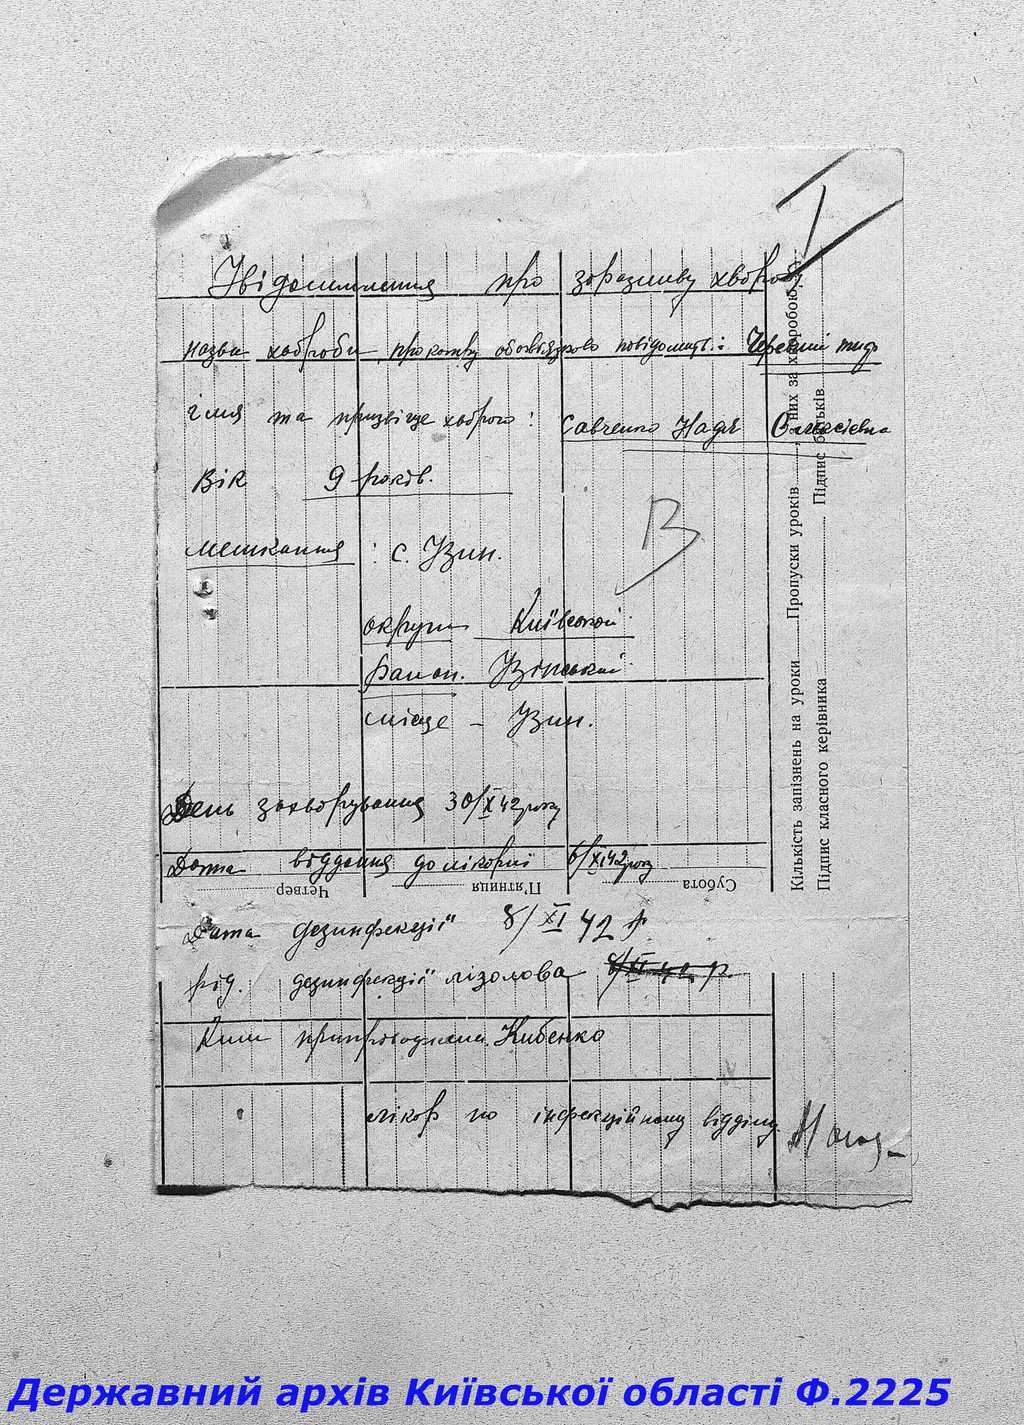 Увідомлення про зоразливу хворобу
назва хвороби про котру обовязково повідомить: Черевний тиф
імя та призвіще хворого: Савченко Надя
Вік 9 років.
мешкання : с. Узин.
В
округи Київської
район. Узінський
місце – Узин.
День захворування 30/X 42 року
Дата віддання до лікарні 6/XI 42 року
Четвер П'ятниця Субота
Дата дезинфекції 8/XI 42 р
рід. дезинфекції лізолова
Ким припроводжена Кибенко
лікар по інфекційному відділу.
Кількість запізнень на уроки Пропуски уроків них за хворобою
Підпис класного керівника Підпис батьків
Державний архів Київської області Ф.2225